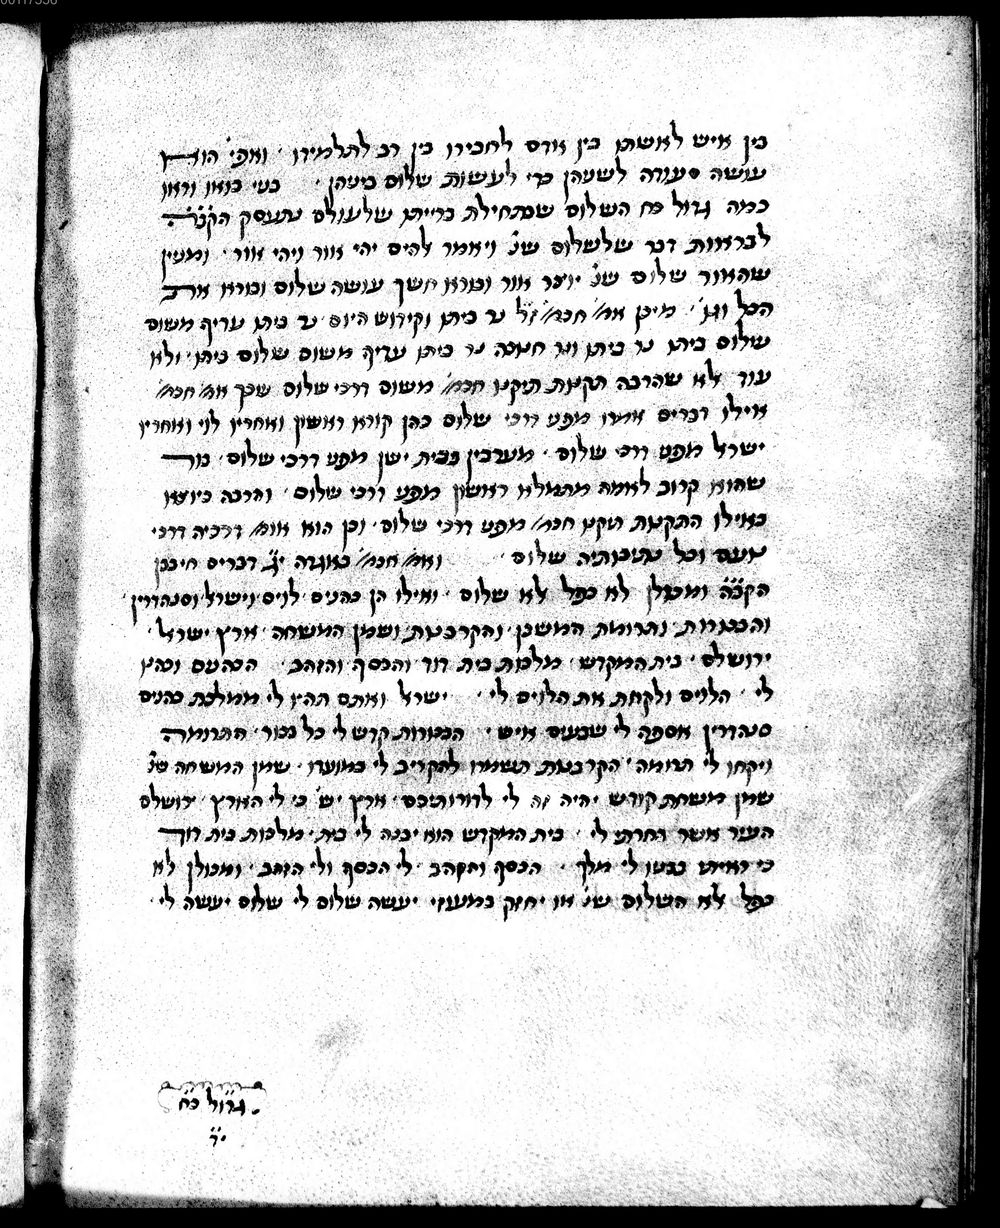 בין איש לאשתו בין אדם לחבירו בין רב לתלמידו · ואפי' הוא
עושה סעודה לשניהן כדי לעשות שלום ביניהן · בני בואו וראו
כמה גדול כח השלום שבתחילת ברייתו שלעולם נתעסק הקב"ה
לבראות דבר שלשלום שנ' ויאמר אלהים יהי אור ויהי אור · ומניין
שהאור שלום שנ' יוצר אור ובורא חשך עושה שלום ובורא את
הכל וגו' · מיכן אמ' חכמ' ז"ל נר ביתו וקידוש היום נר ביתו עדיף משום
שלום ביתו נר ביתו ונר חנוכה נר ביתו עדיף משום שלום ביתו · ולא
עוד אלא שהרבה תקנות תיקנו חכמ' משום דרכי שלום שכך אמ' חכמ'
אילו דברים אמרו מפני דרכי שלום כהן קורא ראשון ואחריו לוי ואחריו
ישראל מפני דרכי שלום · מערבין בבית ישן מפני דרכי שלום · בור
שהוא קרוב לאמה מתמלא ראשון מפני דרכי שלום · והרבה כיוצא
באילו התקנות תיקנו חכמ' מפני דרכי שלום · וכן הוא אומ' דרכיה דרכי
נועם וכל נתיבותיה שלום · ואמ' חכמ' באגדה י"ג דברים חיבבן
הקב"ה ומכולן לא כפל אלא שלום · ואילו הן כהנים · לוים · וישראל וסנהדרין ·
והבכורות · ותרומת המשכן · והקרבנות · ושמן המשחה · ארץ ישראל ·
ירושלם · בית המקדש · מלכות בית דוד · והכסף והזהב · הכהנים וכהנו
לי · הלוים ולקחת את הלוים לי · ישראל ואתם תהיו לי ממלכת כהנים
סנהדרין אספה לי שבעים איש · הבכורות קדש לי כל בכור · התרומה
ויקחו לי תרומה · הקרבנות תשמרו להקריב לי במועדו · שמן המשחה שנ'
שמן משחת קודש יהיה זה לי לדורותיכם · ארץ יש' כי לי הארץ · ירושלם
העיר אשר בחרתי לי · בית המקדש הוא יבנה לי בית · מלכות בית דוד
כי ראיתי בבניו לי מלך · הכסף והזהב · לי הכסף ולי הזהב · ומכולן לא
כפל אלא השלום שנ' או יחזק במעוזי יעשה שלום לי שלום יעשה לי ·
גדול כח